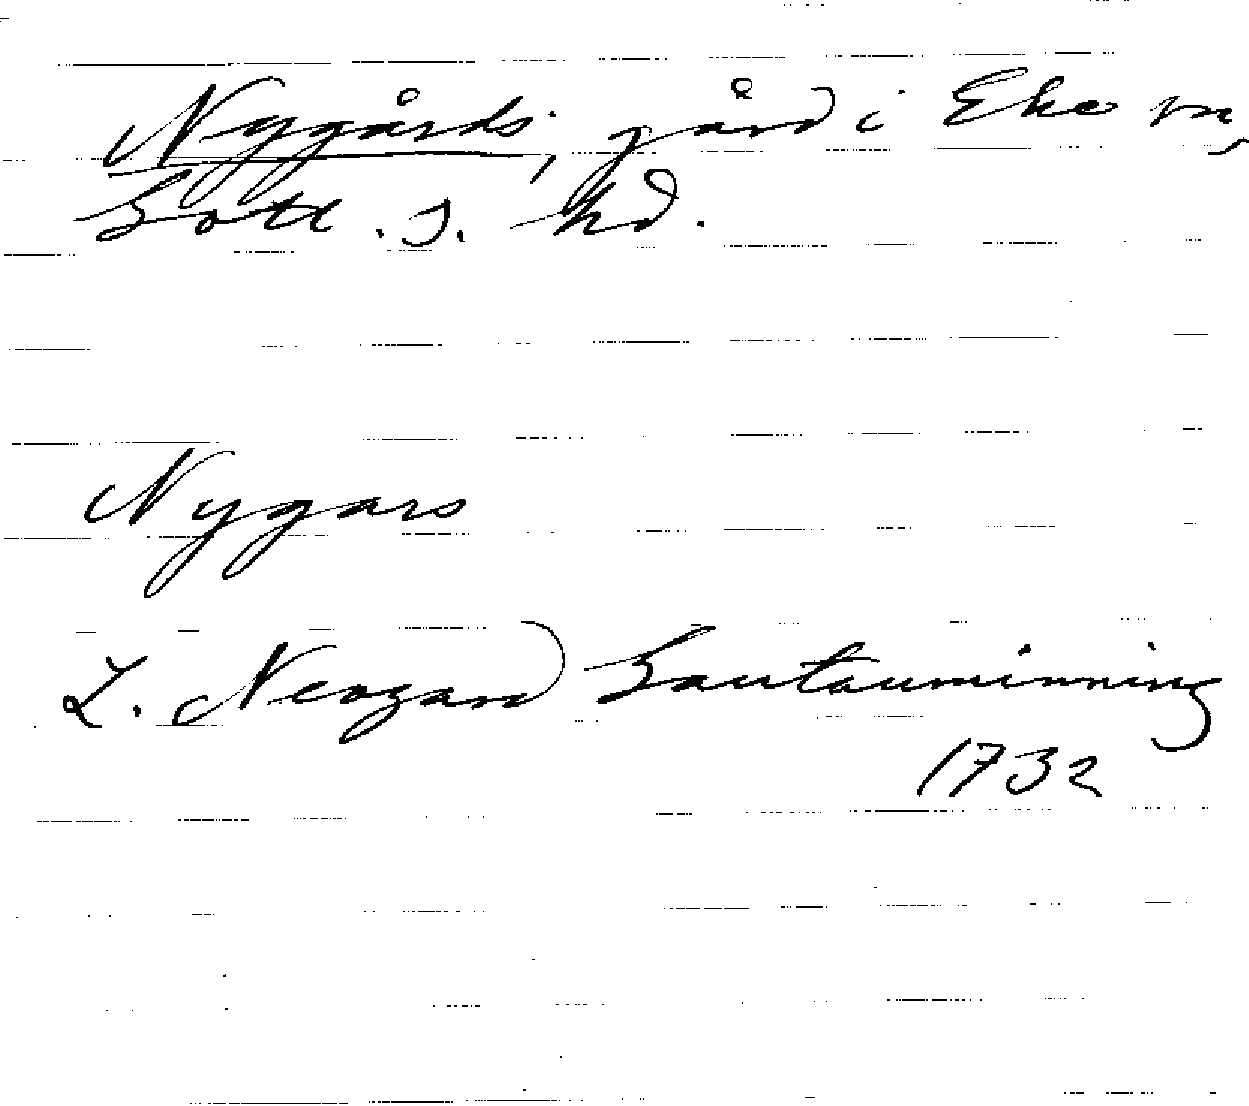 Nygårds, gård i Eke sn,
Gotl. s. hd.
Nygars
L. Neogard Gautauminning
1732